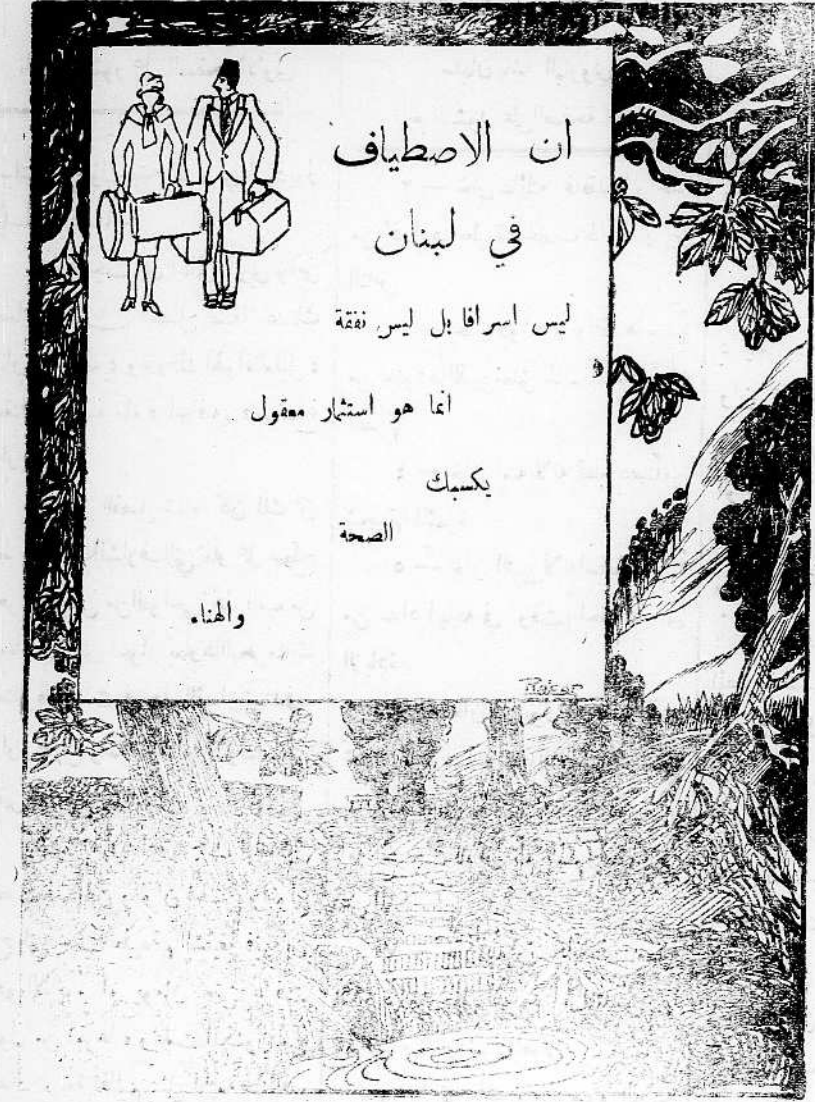 ان الاصطياف
في لبنان
ليس اسرافا بل ليس نفقة
انما هو استثمار معقول
يكسبك
الصحة
والهناء